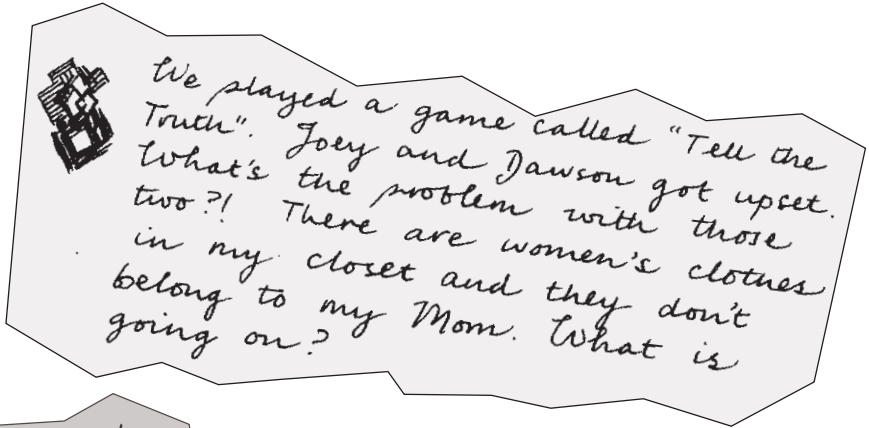 We played a game called "Tell the
Truth". Joey and Dawson got upset.
What's the problem with those
two?! There are women's clothes
in my closet and they don't
belong to my Mom. What is
going on?